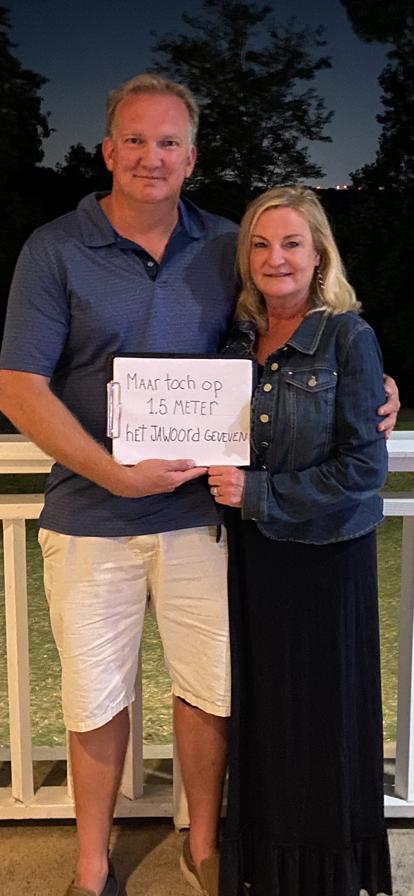 Maar toch op
1.5 METER
het JAWoord GEVEVEN